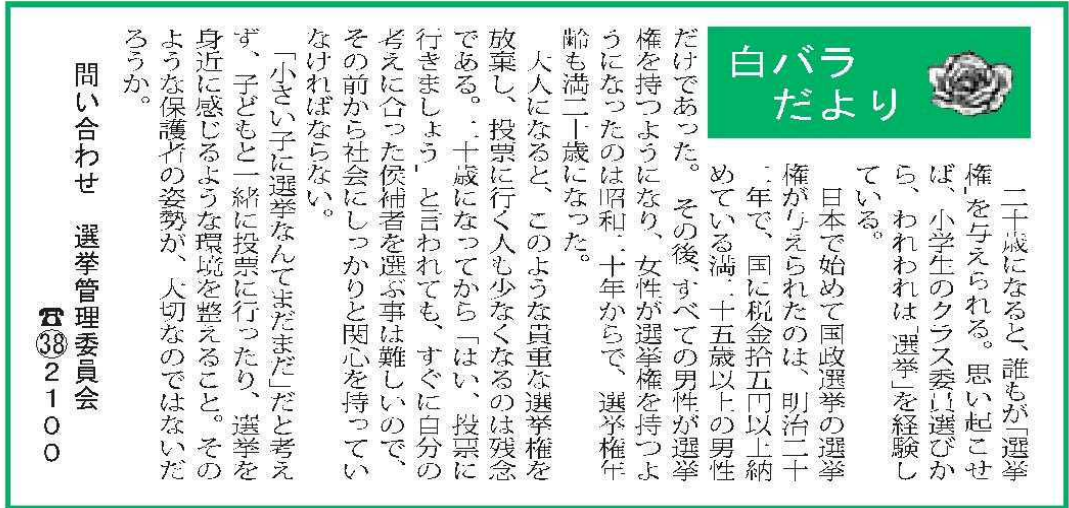 白バラ
だより
二十歳になると、誰もが「選挙
権」を与えられる。思い起こせ
ば、小学生のクラス委員選びか
ら、われわれは「選挙」を経験し
ている。
日本で始めて国政選挙の選挙
権が与えられたのは、明治二十
二年で、国に税金拾五円以上納
めている満二十五歳以上の男性
だけであった。その後、すべての男性が選挙
権を持つようになり、女性が選挙権を持つよ
うになったのは昭和二十年からで、選挙権年
齢も満二十歳になった。
大人になると、このような貴重な選挙権を
放棄し、投票に行く人も少なくなるのは残念
である。二十歳になってから「はい、投票に
行きましょう」と言われても、すぐに自分の
考えに合った侯補者を選ぶ事は難しいので、
その前から社会にしっかりと関心を持ってい
なければならない。
「小さい子に選挙なんてまだまだ」だと考え
ず、子どもと一緒に投票に行ったり、選挙を
身近に感じるような環境を整えること。その
ような保護者の姿勢が、大切なのではないだ
ろうか。
問い合わせ 選挙管理委員会
☎㊳2100